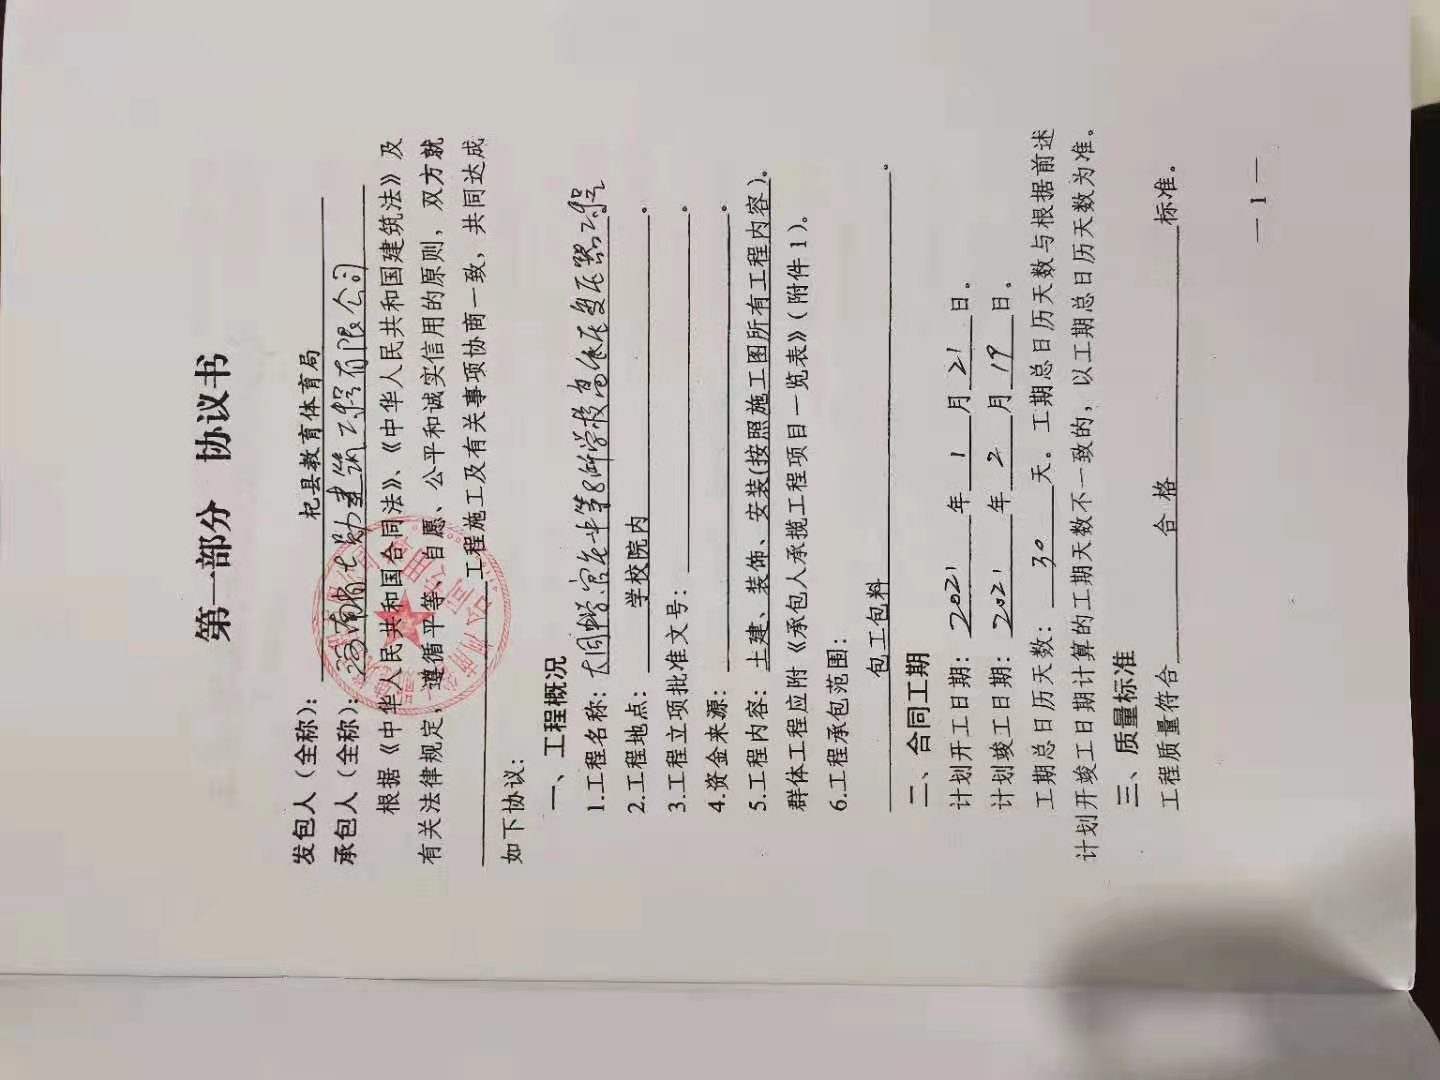 第一部分 协议书
发包人（全称）： 杞县教育体育局
承包人（全称）： 河南省 建筑工程有限公司
根据《中华人民共和国合同法》、《中华人民共和国建筑法》及
有关法律规定，遵循平等、自愿、公平和诚实信用的原则，双方就
工程施工及有关事项协商一致，共同达成
如下协议：
一、工程概况
1.工程名称： 工程。
2.工程地点： 学校院内 。
3.工程立项批准文号： 。
4.资金来源： 。
5.工程内容：土建、装饰、安装(按照施工图所有工程内容)。
群体工程应附《承包人承揽工程项目一览表》（附件1）。
6.工程承包范围：
包工包料 。
二、合同工期
计划开工日期： 2021 年 1 月 21 日。
计划竣工日期： 2021 年 2 月 19 日。
工期总日历天数： 30 天。工期总日历天数与根据前述
计划开竣工日期计算的工期天数不一致的，以工期总日历天数为准。
三、质量标准
工程质量符合 合格 标准。
— 1 —